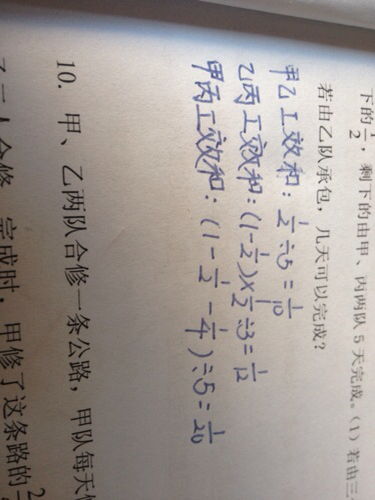 下的1/2，剩下的由甲、丙两队5天完成。(1)若由三
若由乙队承包，几天可以完成？
甲乙工效和：1/2÷5=1/10
乙丙工效和：(1-1/2)×1/2÷3=1/12
甲丙工效和：(1-1/2-1/4)÷5=1/20
10. 甲、乙两队合修一条公路，甲队每天
人合修，完成时，甲修了这条路的2